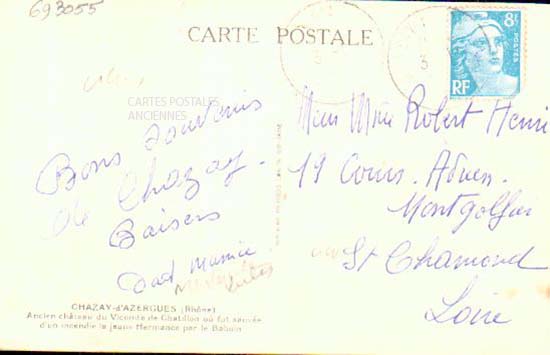 693055
CARTE POSTALE
8F
POSTES
RF
CARTES POSTALES
ANCIENNES
Bons Souvenirs
de Chazay.
Baisers
Mme Robert Henri
19 Cours. Adrien.
Montgolfier
St Chamond
Loire
CHAZAY-d'AZERGUES (Rhône)
Ancien château du Vicomte de Chatillon où fut sauvée
d'un incendie la jeune Hermance par le Baboin